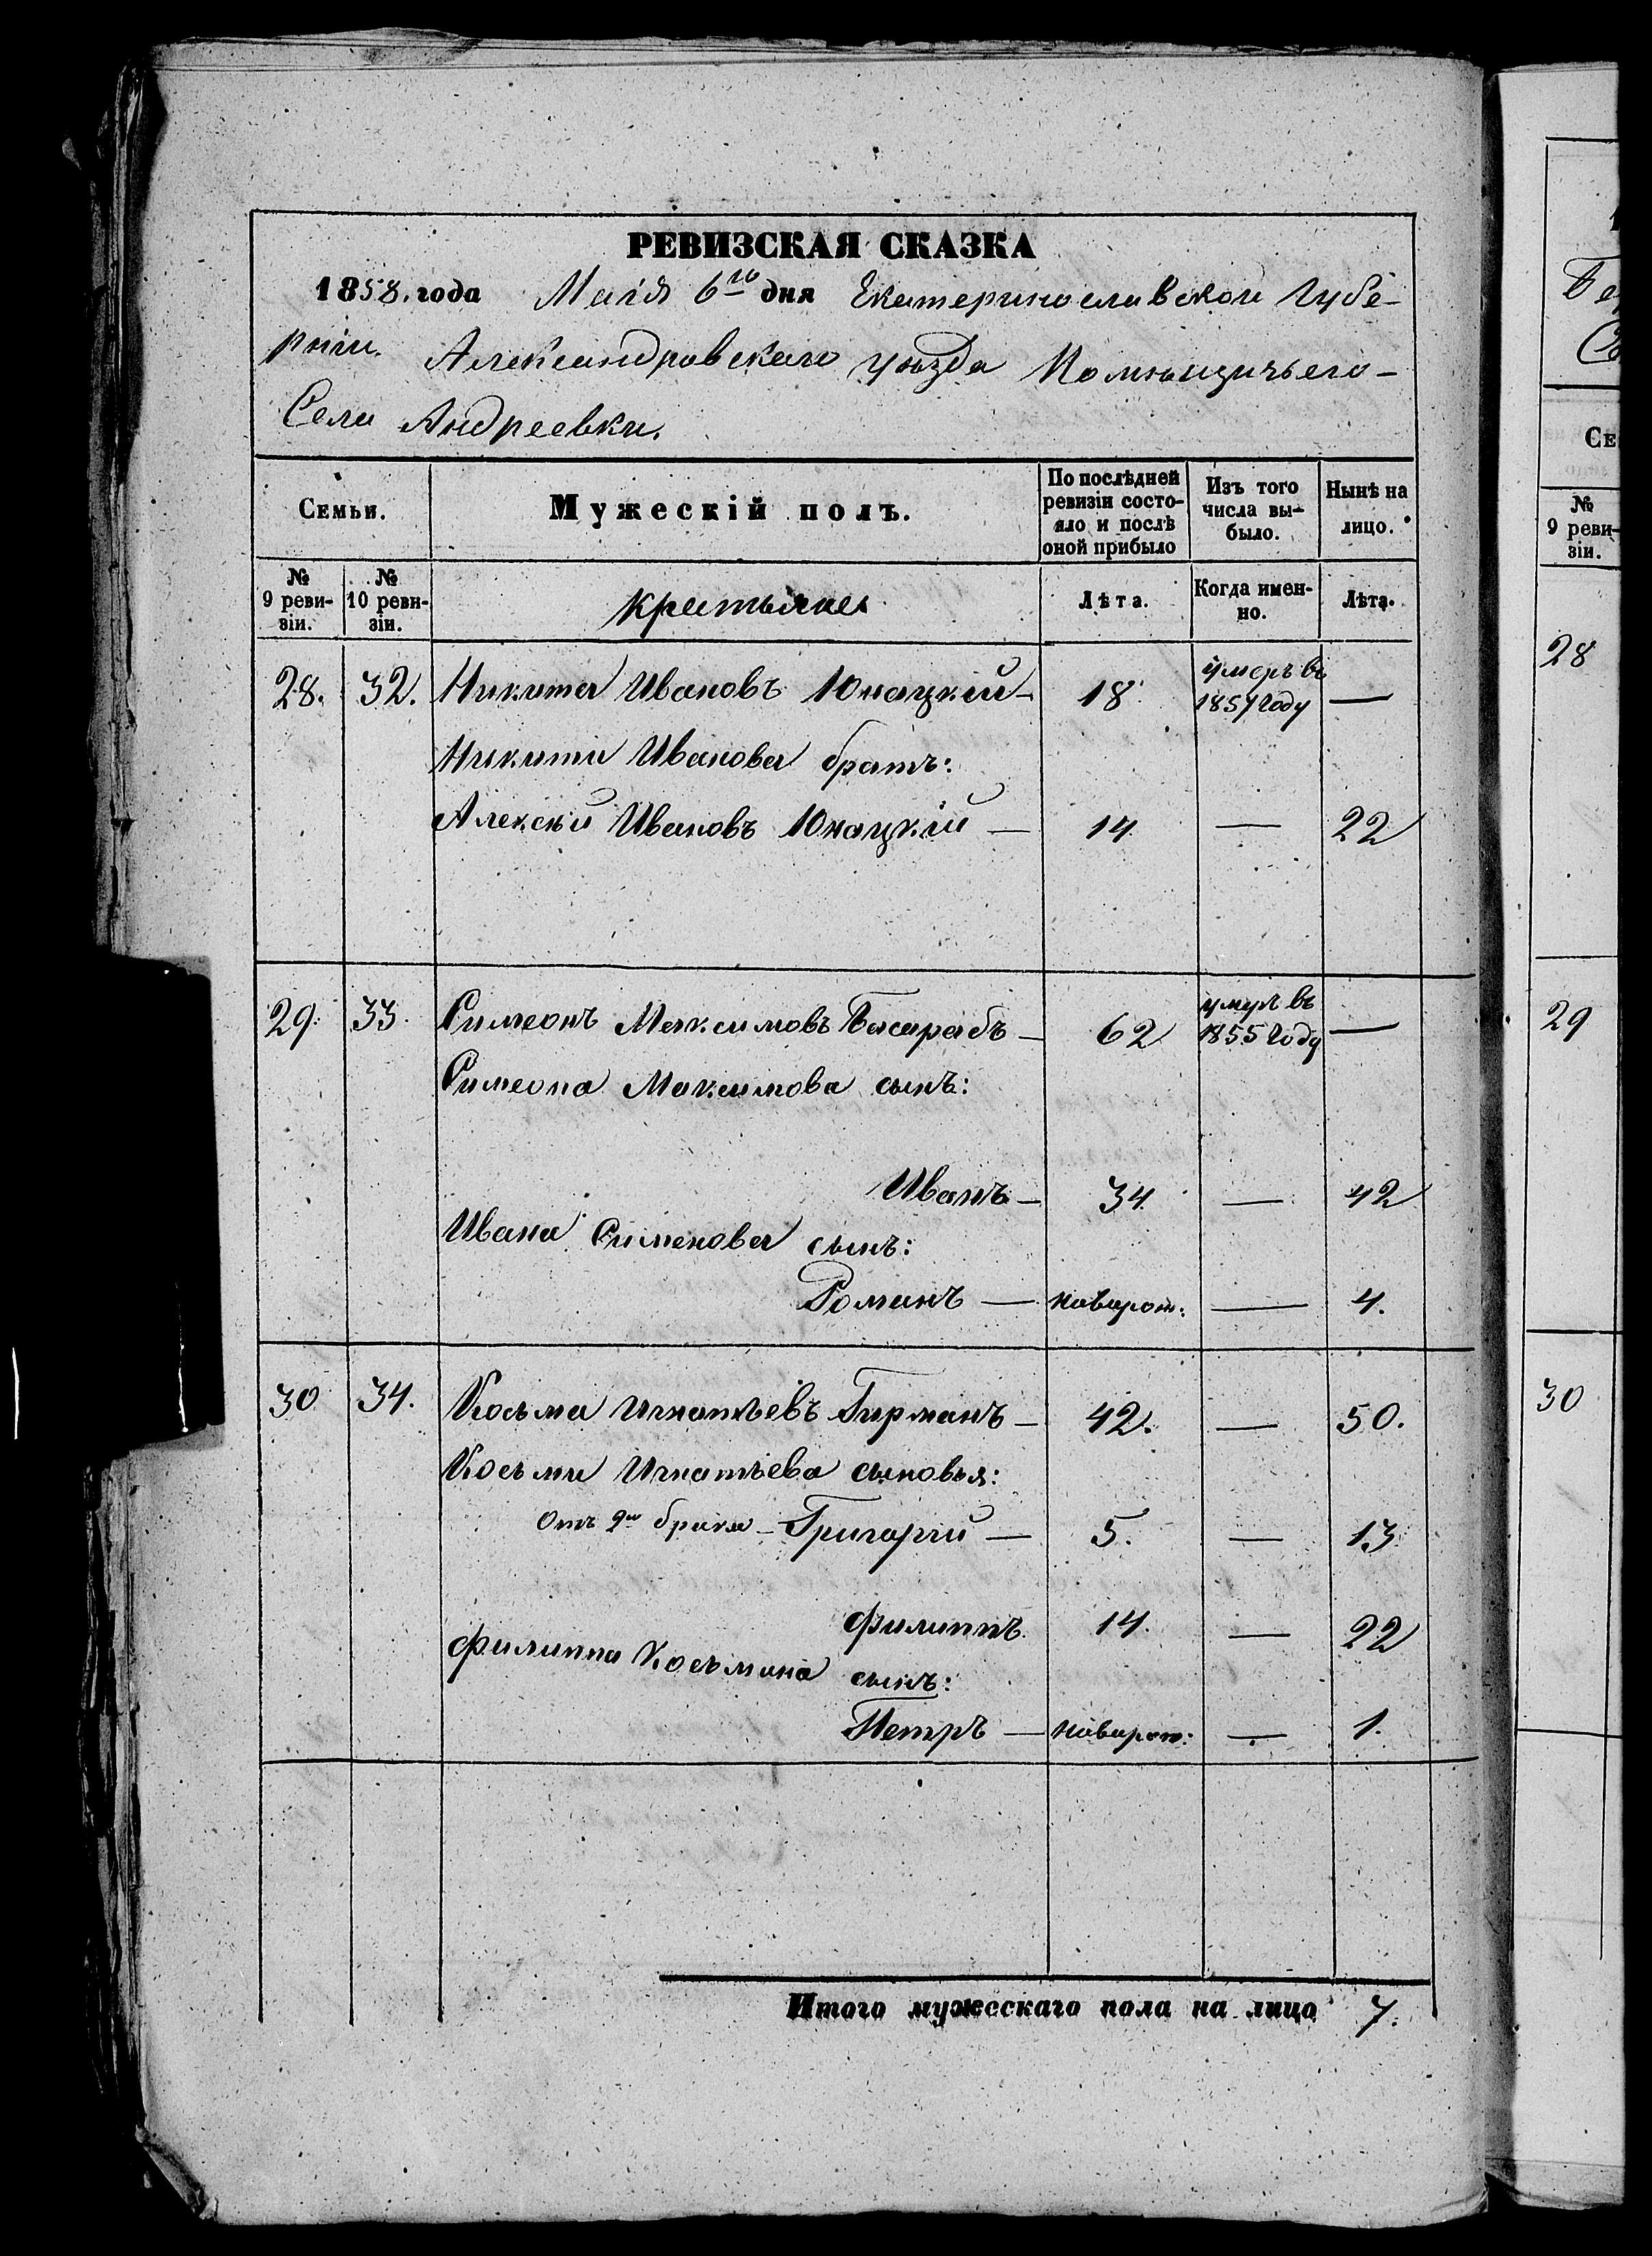 РЕВИЗСКАЯ СКАЗКА
1858. года Маія 6го дня Екатеринославской Губе-
рніи. Александровскаго уѣзда Помѣщичьего-
Села Андреевки.
Семьи.
Мужескій полъ.
По послѣдней ревизіи состояло и послѣ оной прибыло
Изъ того числа выбыло.
Нынѣ на лицо.
№ 9 реви-зіи.
№ 10 реви-зіи.
крестьяне
Лѣта.
Когда имен-но.
Лѣта.
28. 32. Никита Ивановъ Юнацкій - 18 умеръ въ 1857 году —
Никиты Иванова братъ:
Алексѣй Ивановъ Юнацкій — 14 — 22
29. 33. Симеонъ Максимовъ Басарабъ - 62 умеръ въ 1855 году —
Симеона Максимова сынъ:
Иванъ - 34 — 42
Ивана Сименова сынъ:
Романъ — новорож: — 4.
30 34. Косьма Игнатьевъ Гирманъ - 42. — 50.
Косьмы Игнатьева сыновья:
Отъ 2й брака - Григорій — 5. — 13
Филиппъ 14. — 22
Филиппа Косьмина сынъ:
Петръ — новорож: — 1.
Итого мужескаго пола на лицо 7.
Бе
Се
№ 9 реви-зіи.
28
29
30